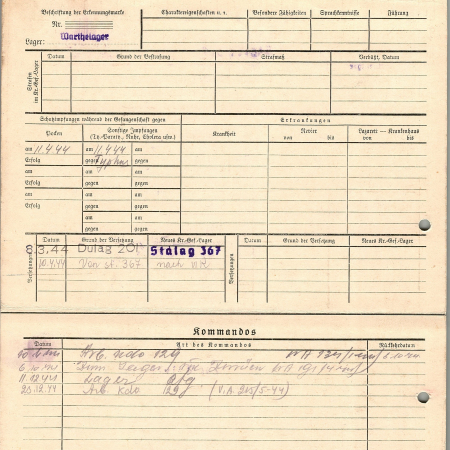 Beschriftung der Erkennungsmarke
Nr.
Lager: Warthelager
Charaktereigenschaften u. s.
Besondere Fähigkeiten
Sprachkenntnisse
Führung
Strafen im Kr.-Gef.-Lager
Datum
Grund der Bestrafung
Strafmaß
Verbüßt, Datum
Schutzimpfungen während der Gefangenschaft gegen
Erkrankungen
Pocken
Sonstige Impfungen
(Ty.-Paraty., Ruhr, Cholera usw.)
Krankheit
Revier
von bis
Lazarett — Krankenhaus
von bis
am 11.4.44 am 11.4.44 am
Erfolg gegen Typhus gegen
am am am
Erfolg gegen gegen
am am am
Erfolg gegen gegen
am am
gegen gegen
Versetzungen
Datum
Grund der Versetzung
Neues Kr.-Gef.-Lager
Versetzungen
Datum
Grund der Versetzung
Neues Kr.-Gef.-Lager
8.3.44 Dulag Stalag 367
10.4.44 Von St. 367 nach
Kommandos
Datum
Art des Kommandos
Rückkehrdatum
Arb. Kdo 129
11.12.44 Lager
20.12.44 Arb. Kdo 129